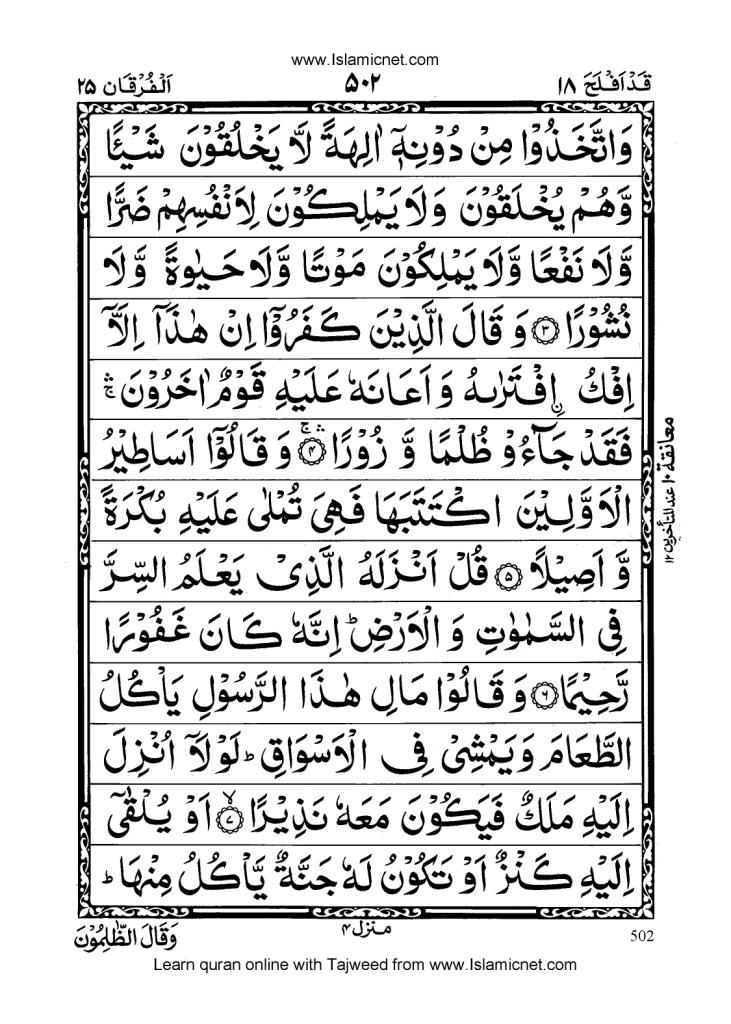 www.Islamicnet.com
قَدْ اَفْلَحَ ۱۸ ۵۰۲ اَلْفُرْقَان ۲۵
وَاتَّخَذُوْا مِنْ دُوْنِهٖۤ اٰلِهَةً لَّا يَخْلُقُوْنَ شَيْـًٔا
وَّهُمْ يُخْلَقُوْنَ وَلَا يَمْلِكُوْنَ لِاَنْفُسِهِمْ ضَرًّا
وَّلَا نَفْعًا وَّلَا يَمْلِكُوْنَ مَوْتًا وَّلَا حَيٰوةً وَّلَا
نُشُوْرًا ۝۳ وَ قَالَ الَّذِيْنَ كَفَرُوْۤا اِنْ هٰذَاۤ اِلَّاۤ
اِفْكُ ِۨافْتَرٰىهُ وَ اَعَانَهٗ عَلَيْهِ قَوْمٌ اٰخَرُوْنَ ۛۚ
فَقَدْ جَآءُوْ ظُلْمًا وَّ زُوْرًا ۝۴ۛۚ وَ قَالُوْۤا اَسَاطِيْرُ
الْاَوَّلِيْنَ اكْتَتَبَهَا فَهِيَ تُمْلٰى عَلَيْهِ بُكْرَةً
وَّ اَصِيْلًا ۝۵ قُلْ اَنْزَلَهُ الَّذِيْ يَعْلَمُ السِّرَّ
فِي السَّمٰوٰتِ وَ الْاَرْضِ ؕ اِنَّهٗ كَانَ غَفُوْرًا
رَّحِيْمًا ۝۶ وَ قَالُوْا مَالِ هٰذَا الرَّسُوْلِ يَاْكُلُ
الطَّعَامَ وَ يَمْشِيْ فِي الْاَسْوَاقِ ؕ لَوْلَاۤ اُنْزِلَ
اِلَيْهِ مَلَكٌ فَيَكُوْنَ مَعَهٗ نَذِيْرًا ۝۷ۙ اَوْ يُلْقٰۤى
اِلَيْهِ كَنْزٌ اَوْ تَكُوْنُ لَهٗ جَنَّةٌ يَّاْكُلُ مِنْهَا ؕ
معانقة ۱۰ عند المتأخرين ۱۲
منزل ۴
وَقَالَ الظّٰلِمُوْنَ
502
Learn quran online with Tajweed from www.Islamicnet.com